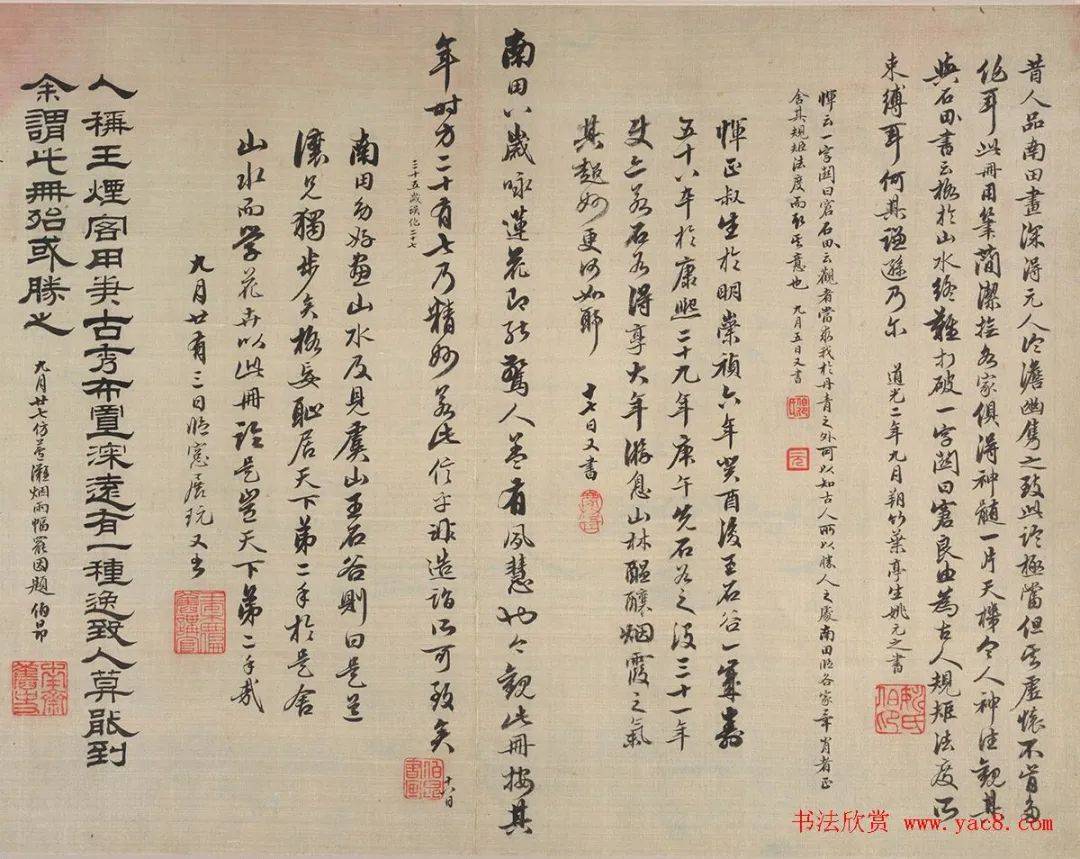 昔人品南田畫深得元人冷澹幽雋之致此論極當但其虛懷不肯多
作耳此冊用筆簡潔擬各家俱得神髓一片天機令人神往觀其
與石田書云格於山水終難打破一字關曰窘良由為古人規矩法度所
束縛耳何其謙遜乃爾 道光二年九月朔竹葉亭生姚元之書
惲云一字關曰窘石田云觀者當求我於丹青之外可以知古人所以勝人之處南田臨各家幸肖者正
含其規矩法度而取其意也 九月五日又書
惲正叔生於明崇禎六年癸酉後王石谷一歲壽
五十八卒於康熙二十九年庚午先石谷之沒三十一年
使亦若石谷得享大年游息山林醞釀烟霞之氣
其超妙更何如耶 十七日又書
南田八歲咏蓮花即能驚人蓋有夙慧也今觀此冊按其
年時方二十有七乃精妙若此信乎非造詣所可致矣 十八日
二十五歲誤作二十七
南田多好畫山水及見虞山王石谷則曰是道
讓兄獨步矣格妄恥居天下第二手於是舍
山水而學花卉以此冊論是豈天下第二手哉
九月廿有三日晴窗展玩又書
人稱王煙客用筆古秀布置深遠有一種逸致人莫能到
余謂此冊殆或勝之
九月廿七仿 灘烟雨幅罷因題 伯昂
书法欣赏 www.yac8.com